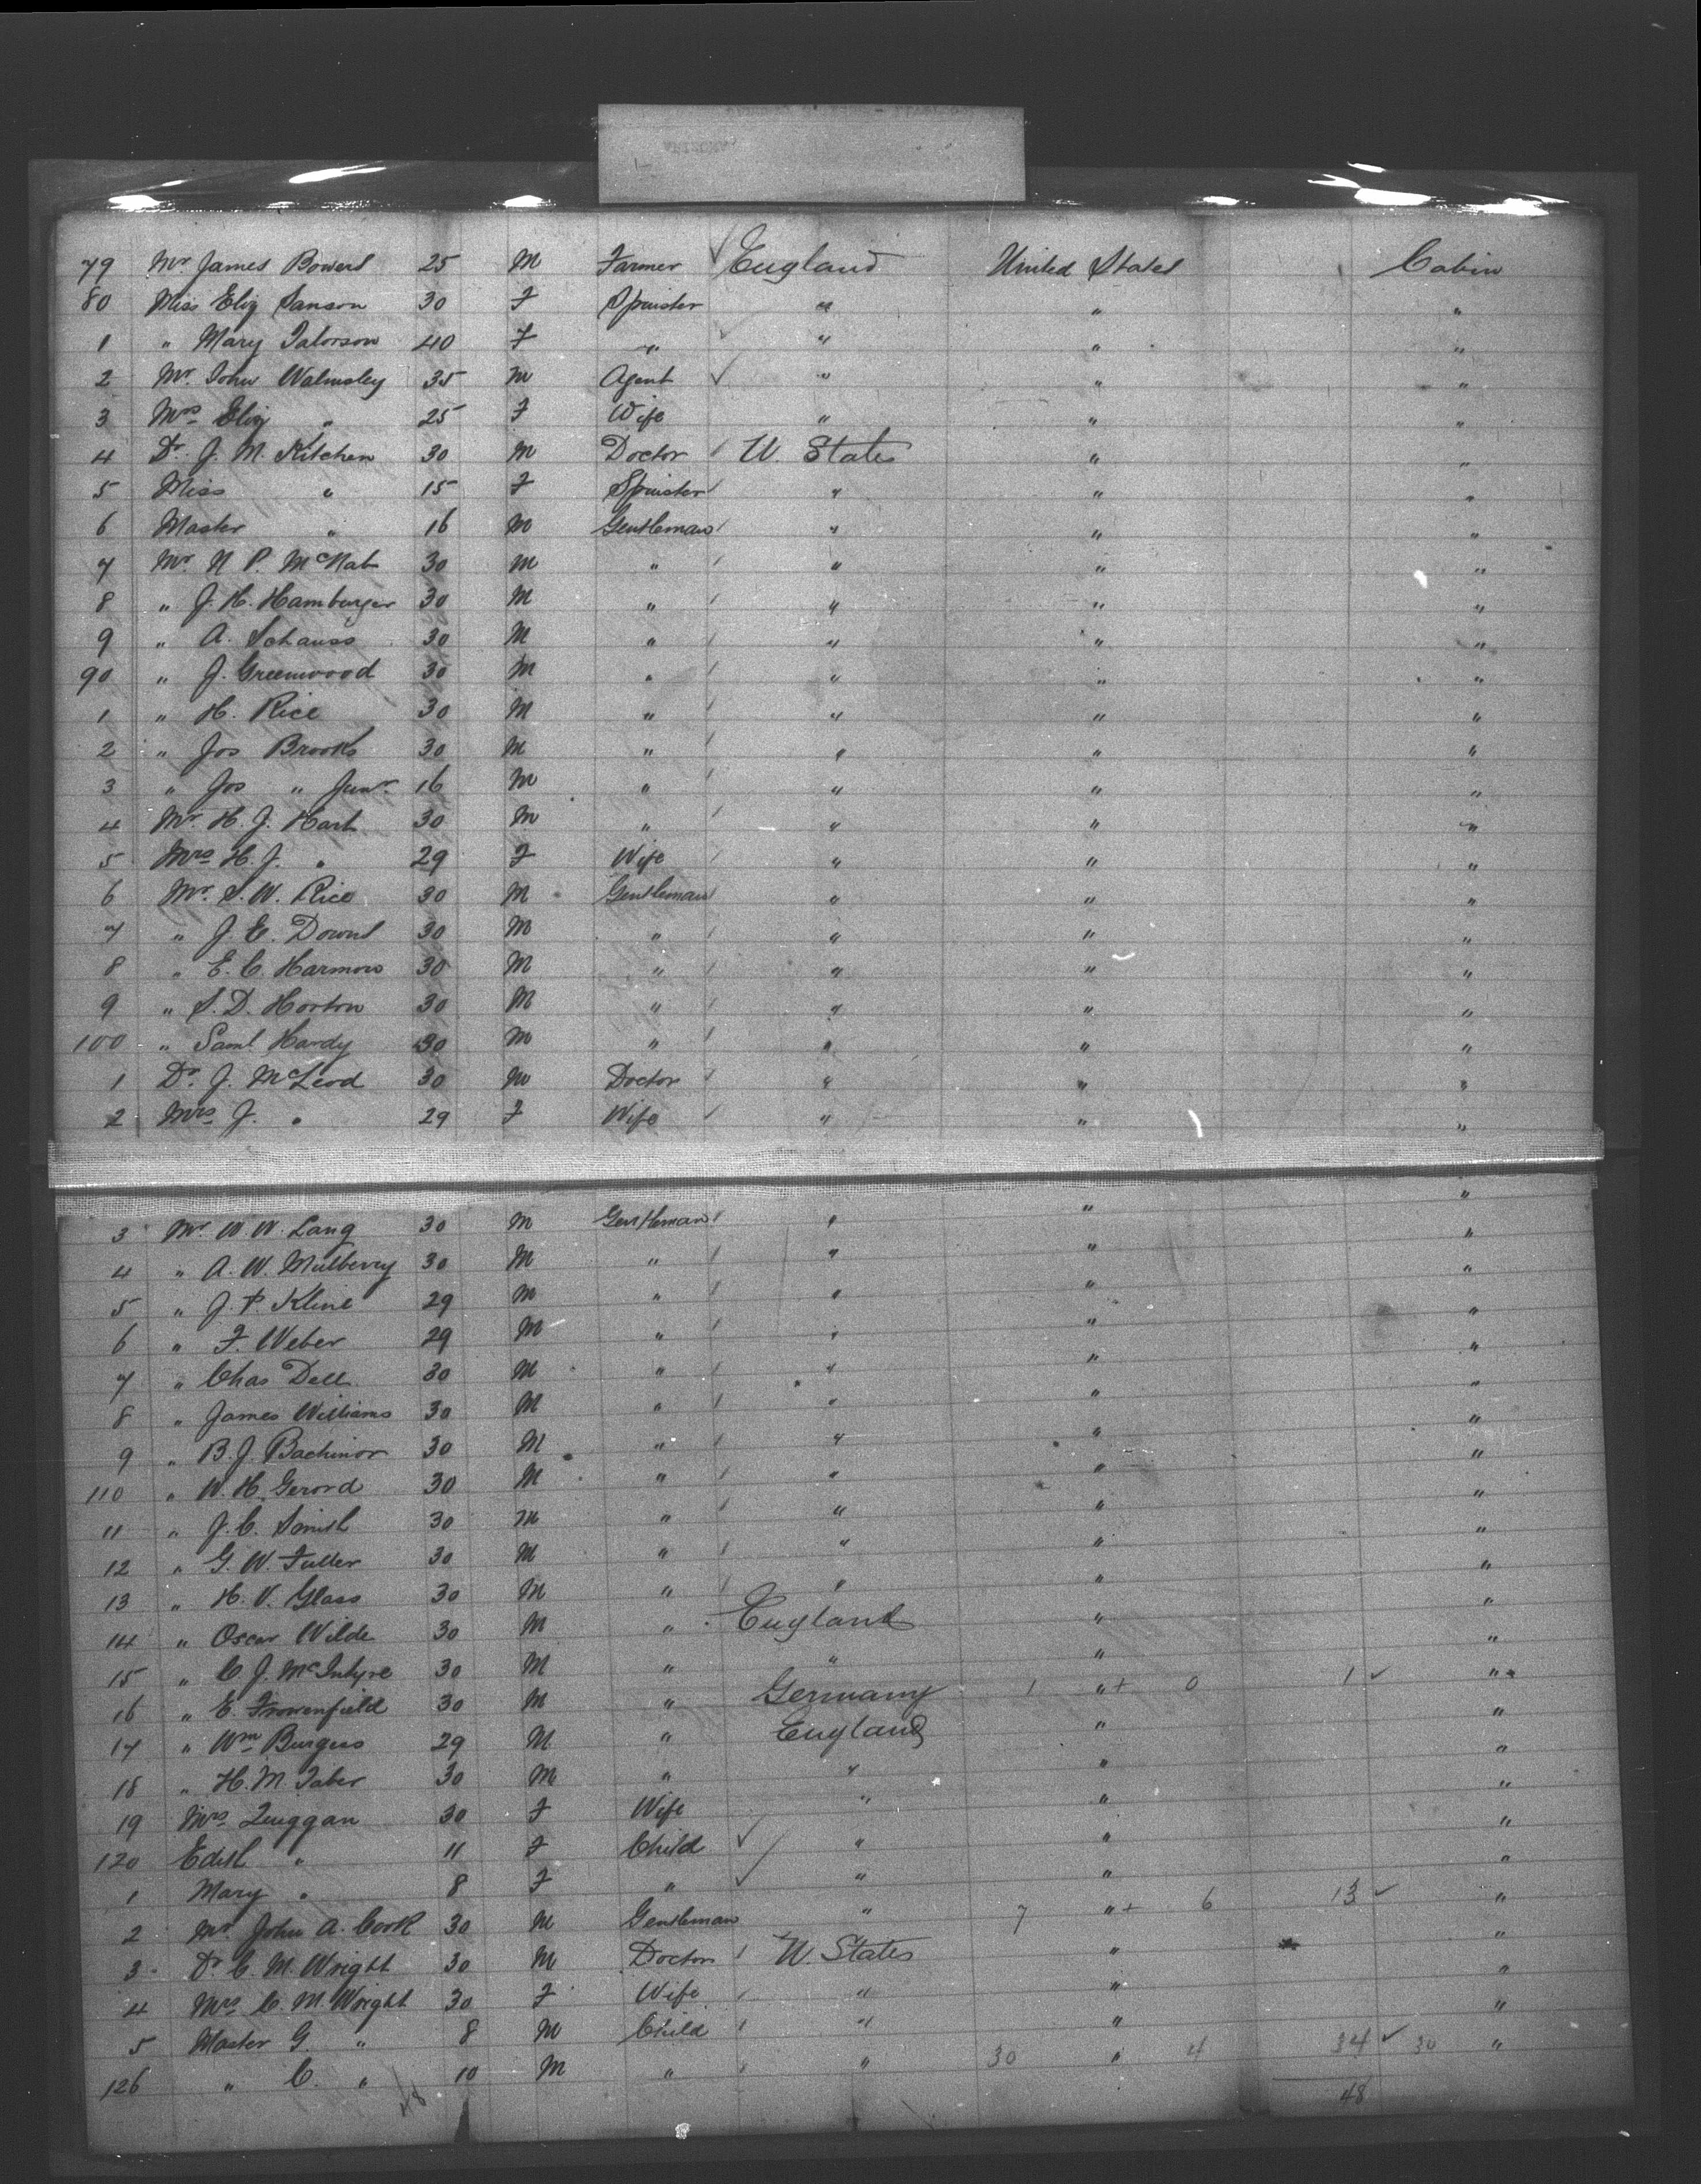 79 Mr James Bowers 25 M Farmer England United States Cabin
80 Miss Eliz Sanson 30 F Spinster " " "
1 " Mary 40 F " " " "
2 Mr John Walmsley 35 M Agent " " "
3 Mrs Eliz " 25 F Wife " " "
4 Dr. J. M. Kitchen 30 M Doctor U. States " "
5 Miss " 15 F Spinster " " "
6 Master " 16 M Gentleman " " "
7 Mr. N P. McNab 30 M " " " "
8 " J. H. Hamburger 30 M " " " "
9 " A. Schauss 30 M " " " "
90 " J. Greenwood 30 M " " " "
1 " H. Rice 30 M " " " "
2 " Jos Brooks 30 M " " " "
3 " Jos " Junr 16 M " " " "
4 Mr. H. J. Hart 30 M " " " "
5 Mrs H. J. " 29 F Wife " " "
6 Mr. S. W. Rice 30 M Gentleman " " "
7 " J. E. Downs 30 M " " " "
8 " E. C. Harmon 30 M " " " "
9 " S. D. Horton 30 M " " " "
100 " Saml Hardy 30 M " " " "
1 Dr. J. McLeod 30 M Doctor " " "
2 Mrs J. " 29 F Wife " " "
3 Mr W. W. Lang 30 M Gentleman " " "
4 " A. W. Mulberry 30 M " " " "
5 " J. P. Kline 29 M " " " "
6 " F. Weber 29 M " " " "
7 " Chas Dell 30 M " " " "
8 " James Williams 30 M " " " "
9 " B. J. Bachinor 30 M " " " "
110 " W. H. Gerord 30 M " " " "
11 " J. C. Smith 30 M " " " "
12 " G. W. Fuller 30 M " " " "
13 " H. V. Glass 30 M " " " "
14 " Oscar Wilde 30 M " England " "
15 " C. J. McIntyre 30 M " " " "
16 " E. Frowenfield 30 M " Germany 1 " + 0 1 ✓ "
17 " Wm Burgess 29 M " England " "
18 " H. M. Taber 30 M " " " "
19 Mrs 30 F Wife " " "
120 Edith " 11 F Child " " "
1 Mary " 8 F " " " "
2 Mr John A. Cook 30 M Gentleman " 7 " + 6 13 ✓ "
3 Dr C. M. Wright 30 M Doctor U. States " "
4 Mrs C. M. Wright 30 F Wife " " "
5 Master G. " 8 M Child " " "
126 " C. " 10 M " " 30 " 4 34 ✓ 30 "
48 48